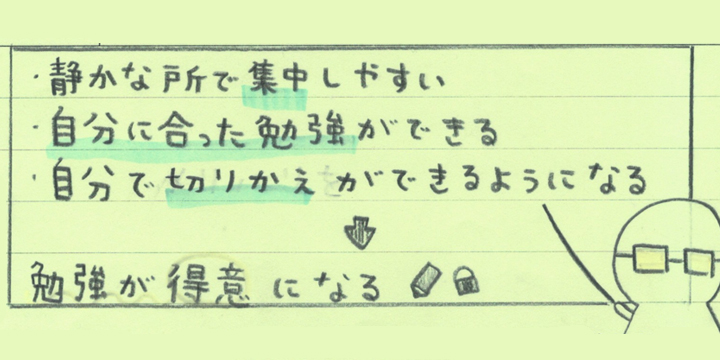 ・静かな所で集中しやすい
・自分に合った勉強ができる
・自分で切りかえができるようになる
勉強が得意になる